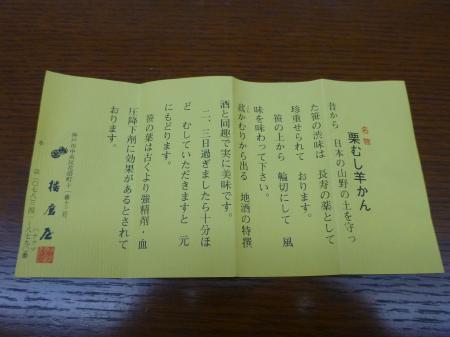 名物
栗むし羊かん
昔から 日本の山野の土を守っ
た笹の渋味は 長寿の薬として
珍重せられて おります。
笹の上から 輪切にして 風
味を味わって下さい。
蔵かむりから出る 地酒の特撰
酒と同趣で実に美味です。
二、三日過ぎましたら十分ほ
ど むしていただきますと 元
にもどります。
笹の葉は古くより強精剤・血
圧降下剤に効果があるとされて
おります。
播磨屋